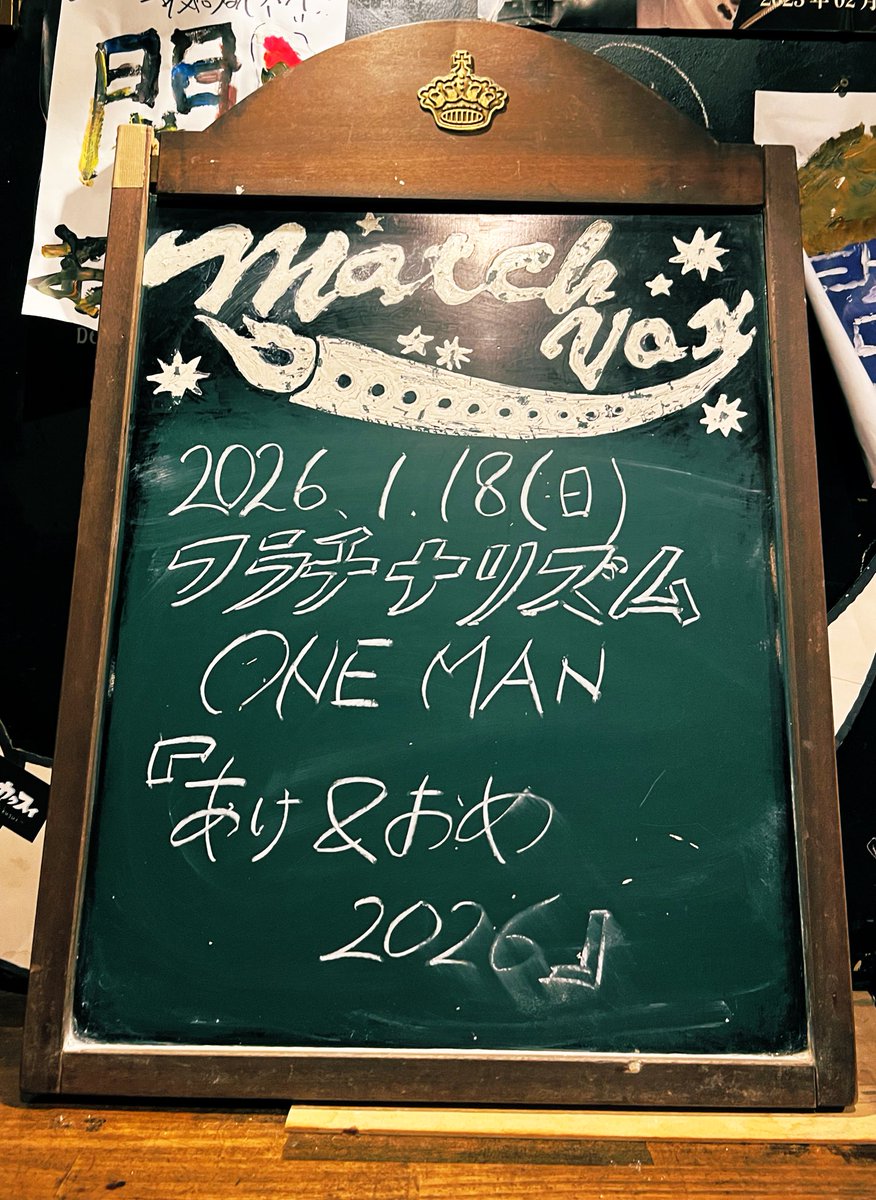 2025年02月
match
vox
2026.1.18(日)
フラチナリズム
ONE MAN
『あけ&おめ
2026』
カクスィ